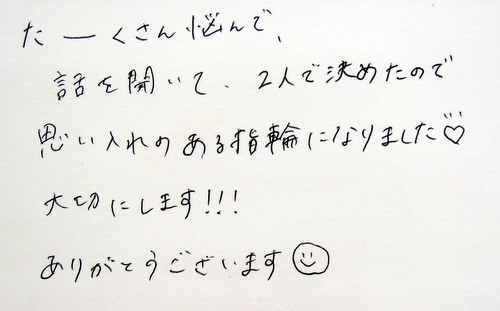 たーくさん悩んで、
話を聞いて、2人で決めたので
思い入れのある指輪になりました♡
大切にします!!!
ありがとうございます☺